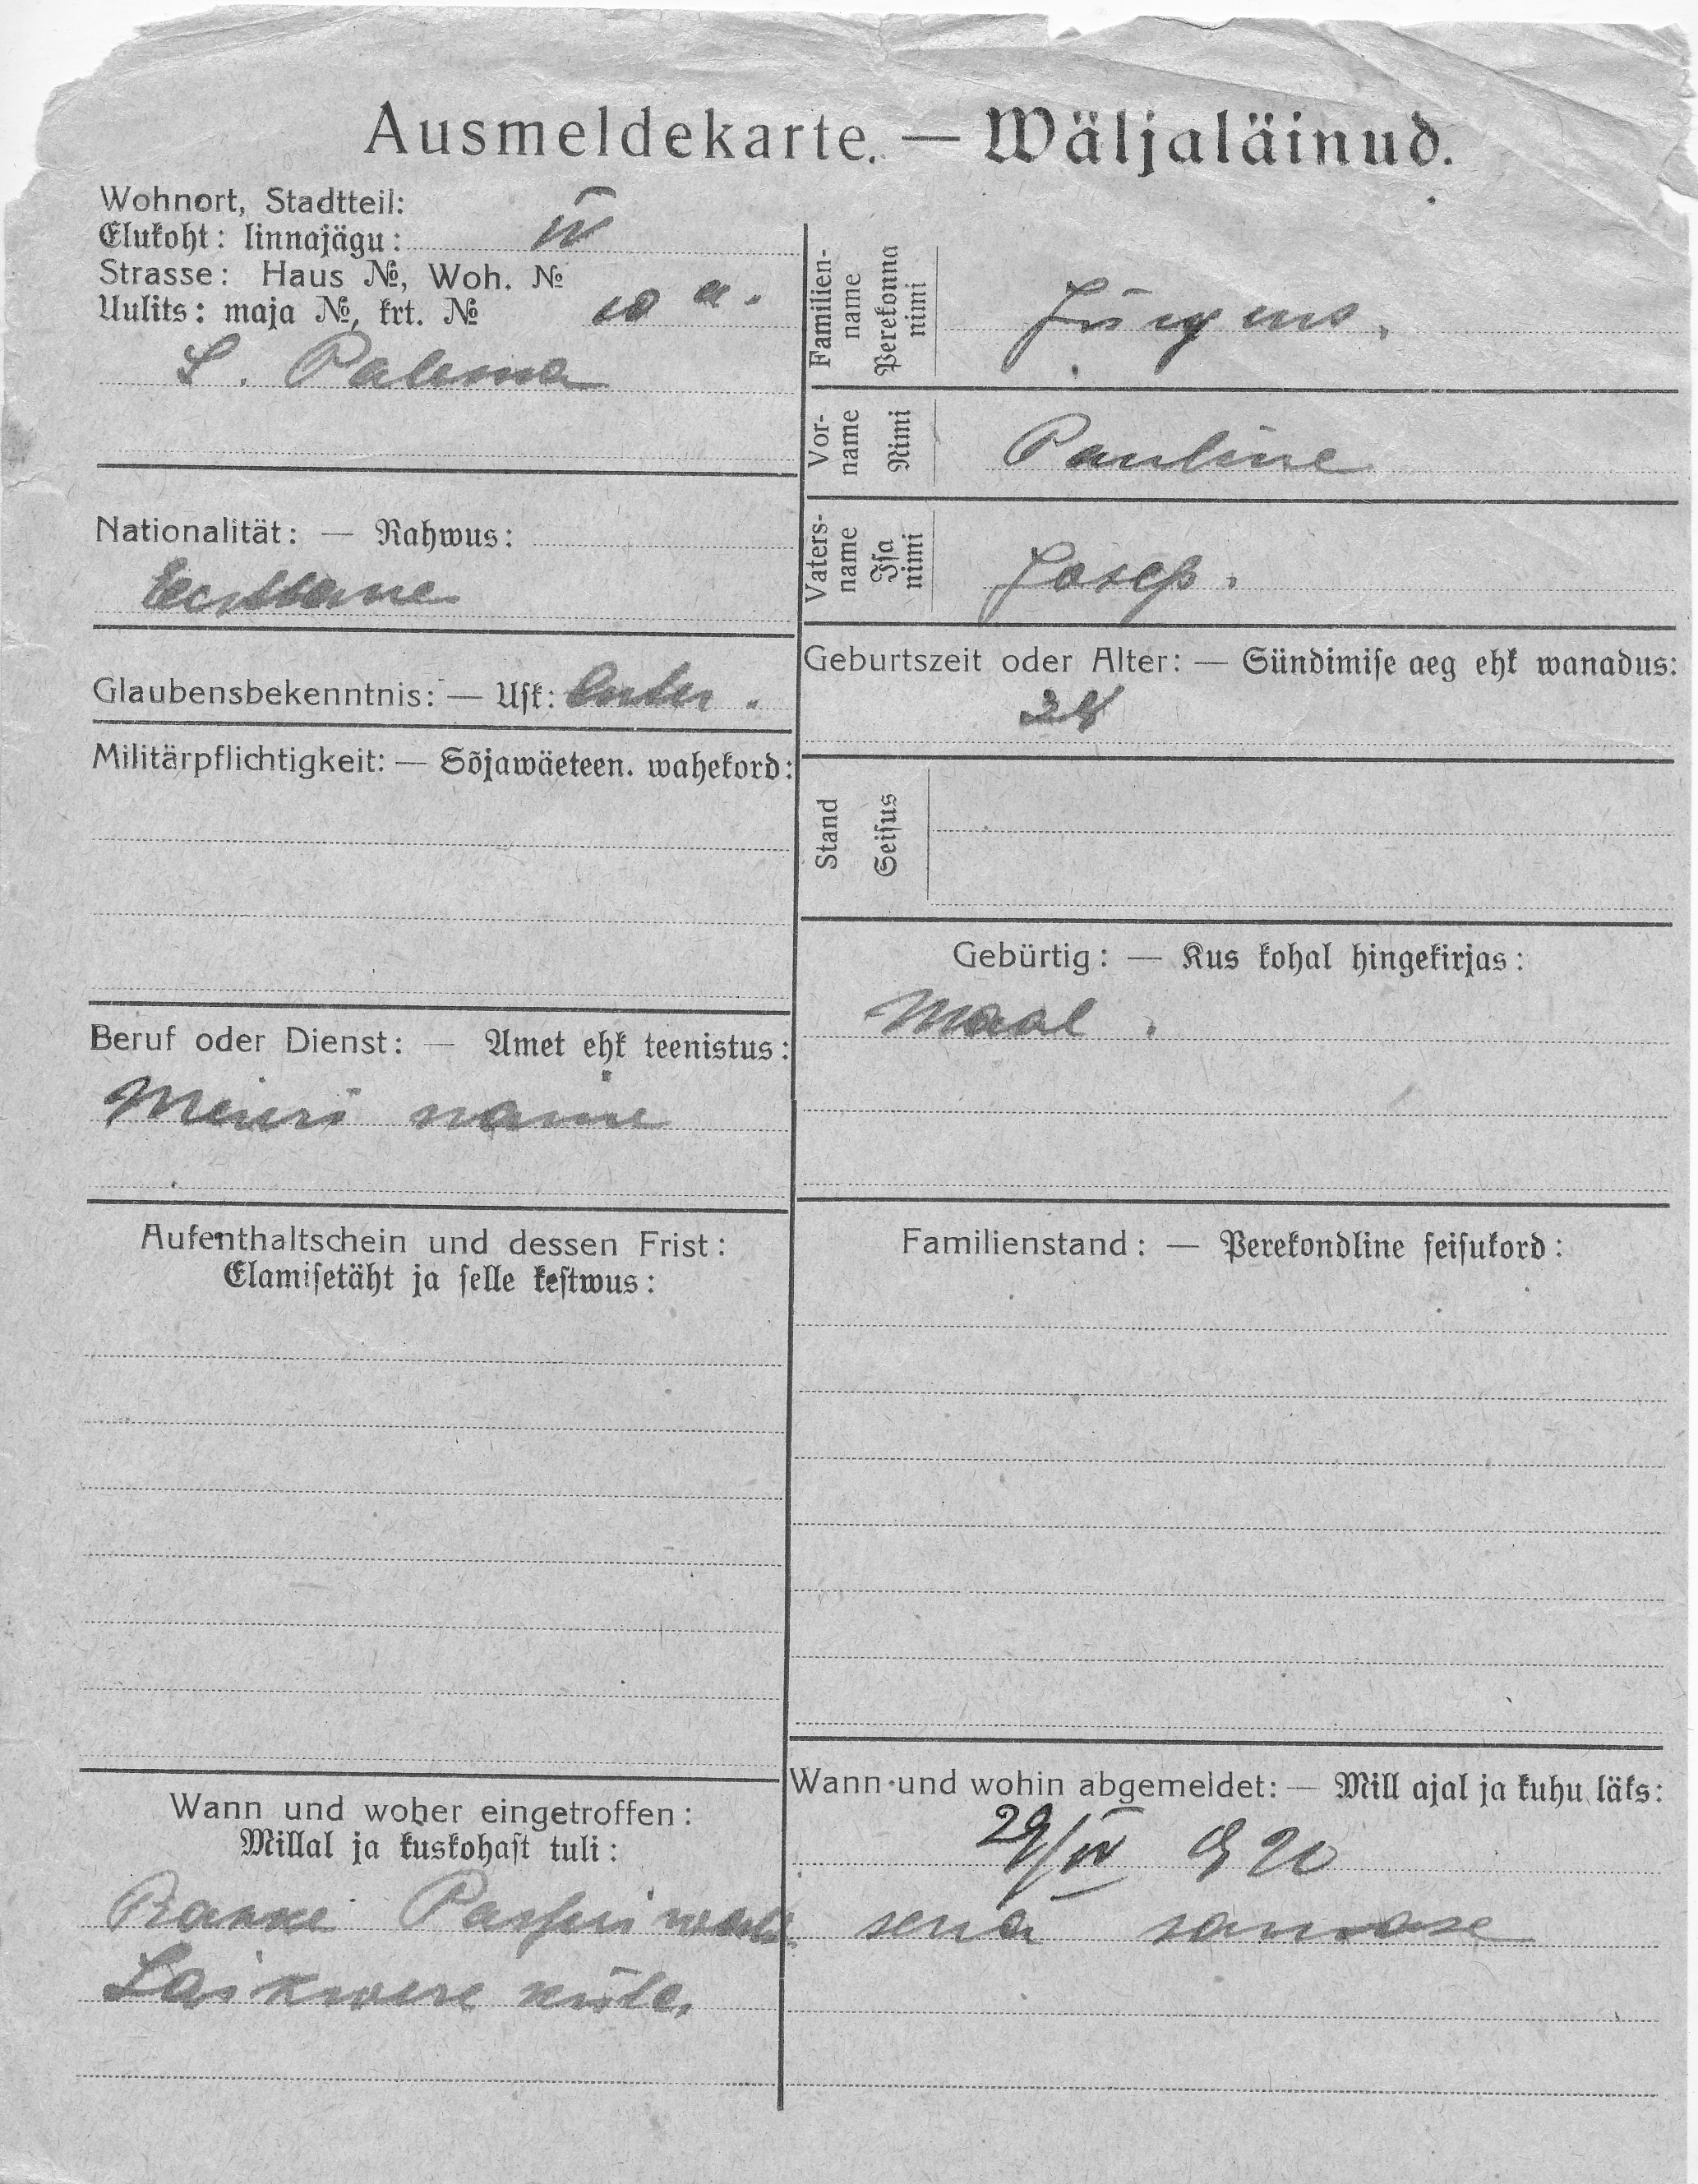 Ausmeldekarte. — Wäljaläinud.
Wohnort, Stadtteil:
Elukoht: linnajägu: IV
Strasse: Haus №, Woh. №
Uulits: maja №, krt. № 10 a.
S. Palema
Nationalität: — Rahwus:
Eestlane
Glaubensbekenntnis: — Usk: luter.
Militärpflichtigkeit: — Sõjawäeteen. wahekord:
Beruf oder Dienst: — Amet ehk teenistus:
Meieri naine
Aufenthaltschein und dessen Frist:
Elamisetäht ja selle kestwus:
Wann und woher eingetroffen:
Millal ja kuskohast tuli:
Raske
Laikwere küla,
Familien-
name
Perekonna
nimi
Jürgens.
Vor-
name
Nimi
Pauline
Vaters-
name
Isa
nimi
Josep.
Geburtszeit oder Alter: — Sündimise aeg ehk wanadus:
28
Stand
Seisus
Gebürtig: — Kus kohal hingekirjas:
Maal.
Familienstand: — Perekondline seisukord:
Wann und wohin abgemeldet: — Mill ajal ja kuhu läks:
29/IV 920
sena samase